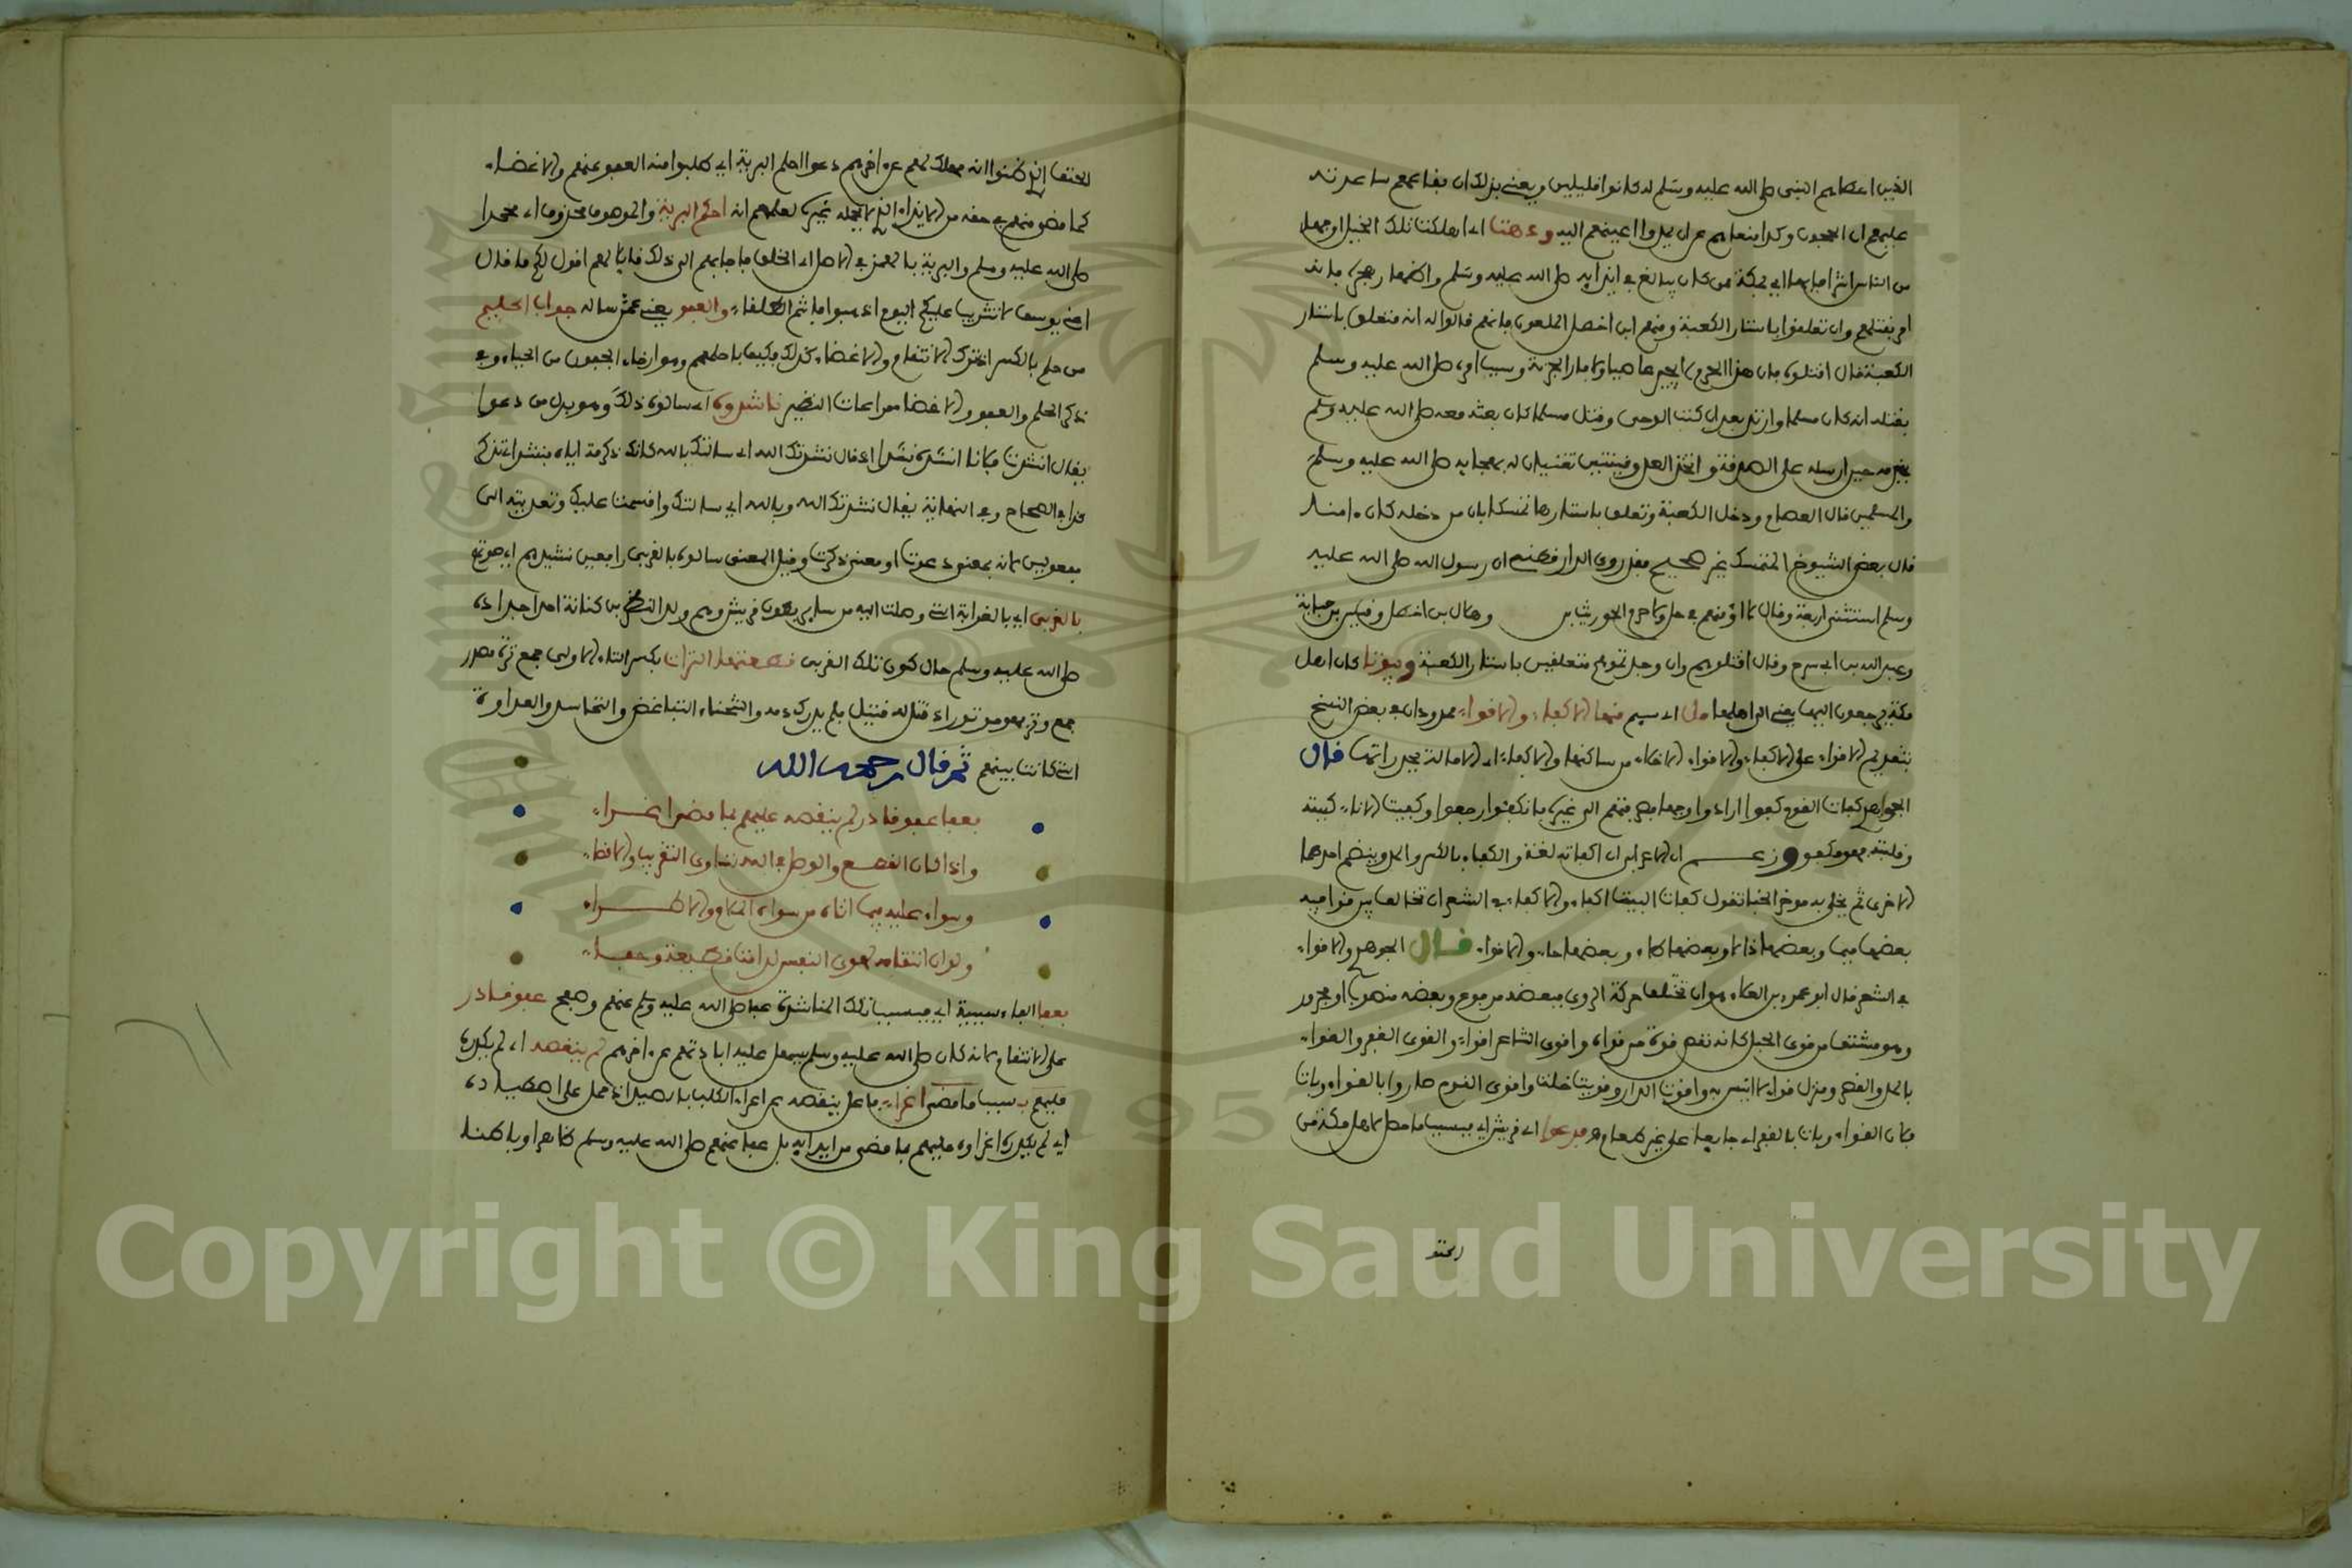 الذين اعطاهم النبي صلى الله عليه وسلم له كانوا قليلين ويعني بذلك ان بقا معهم ساعدته
من الناس
امر بقتلهم وان تعلقوا باستار الكعبة ومنهم ابن اخطل الملعون فانهم قالوا له انه متعلق باستار
الكعبة فقال اقتلوه فان هذا الحرم لا يجير عاصيا ولا فارا بخربة وسبب امره صلى الله عليه وسلم
بقتله انه كان مسلما وارتد بعد ان كتب الوحي وقتل مسلما كان بعثه معه صلى الله عليه وسلم
يخدمه حين ارسله على الصدقة واتخذ قينتين تغنيان له بهجائه صلى الله عليه وسلم
والمسلمين قال العصام ودخل الكعبة وتعلق باستارها تمسكا بان من دخله كان ءامنا
قال بعض الشيوخ التمسك غير صحيح فقد روى الدارقطني ان رسول الله صلى الله عليه
وسلم استثنى اربعة وقال لا اؤمنهم في حل ولا حرم الحويرث بن وهلال بن اخطل ومقيس بن صبابة
وعبد الله بن ابي سرح وقال اقتلوهم وان وجدتموهم متعلقين باستار الكعبة وبيوتا كان اهل
مكة يرجعون اليها يعني الى اهلها مل اي سيم منها الاكفاء والاقواء ممدودان في بعض النسخ
بتقديم الاقواء على الاكفاء والاقواء الاخلاء من ساكنها والاكفاء اي الامالة قال
الجوهري كفات القوم كفوا ارادوا وجها فصرفتهم الى غيره فانكفئوا رجعوا وكفيت الاناء كببته
وقلبته فهو مكفو وزعم ابن الاعرابي ان اكفاته لغة والكفاء بالكسر والمد
الاخرى ثم يخل به موخر الخبا تقول كفات البيت اكفاء والاكفاء في الشعر ان تخالف بين قوافيه
بعضها ميما وبعضها ذالا وبعضها طاء وبعضها حاء والاقواء قال الجوهري والاقواء
في الشعر قال ابو عمرو بن العلاء هو ان تختلف حركة الروي فبعضه مرفوع وبعضه منصوب او مجرور
وهو مشتق من قوى الحبل كانه نقص قوة من قواه واقوى الشاعر اقواء والقوى القفر والقواء
بالمد والقصر ومنزل قواء لا انيس به واقوت الدار وقويت خلت واقوى القوم صاروا بالقواء وبات
فلان القواء وبات بالقفر اي جايعا على غير طعام فدعوا اي قريش اي بسبب ما حصل لاهل مكة من
الحتف
الحتف الذي ظنوا انه مهلك لهم عن اخرهم دعوا احلم البرية اي طلبوا منه العفو عنهم والاغضاء
كما مضى منهم في حقه من الايذاء الذي لا يحمله غيره لعلمهم انه احلم البرية والموصوف محذوف اي محمدا
صلى الله عليه وسلم والبرية بالهمز في الاصل اي الخلق فاجابهم الى ذلك قايلا لهم اقول لكم ما قال
اخي يوسف لا تثريب عليكم اليوم اذهبوا فانتم الطلقاء والعفو يعني عمن ساله جواب الحليم
من حلم بالكسر اذا ترك الانتقام والاغضاء كذلك فكيف باحلمهم وهو ارخاء الجفون من الحياء وفي
ذكر الحلم والعفو والاغضا مراعات النظير ناشدوه اي سالوه ذلك وهو بدل من دعوا
يقال انشدت فلانا انشده نشدا اذا قال نشدتك الله اي سالتك بالله كانك ذكرته اياه فنشد اي تذكر
كذا في الصحاح وفي النهاية يقال نشدتك الله وبالله اي سالتك واقسمت عليك وتعديته الى
مفعولين لانه بمعنى دعوت او معنى ذكرت وقيل المعنى سالوه بالقربى رافعين نشيدهم اي صوتهم
بالقربى اي بالقرابة التي وصلت اليه من ساير بطون قريش وهم ولد النضر بن كنانة احد اجداده
صلى الله عليه وسلم حال كون تلك القربى قطعتها الترات بكسر التاء الاولى جمع ترة مصدر
جمع وتر فهو موتور اي قتل له قتيل فلم يدرك دمه والشحناء التباغض والتحاسد والعداوة
التي كانت بينهم ثم قال رحمه الله
فعفا عفو قادر لم ينغصه عليهم بما مضى اغراء
واذا كان القطع والوصل لله تساوى التقريب والاقصاء
وسواء عليه فيما اتاه من سواه الملام والاطراء
ولو ان انتقامه لهوى النفس لدامت قطيعة وجفاء
فعفا الفاء سببية اي فبسبب تلك المناشدة عفا صلى الله عليه وسلم عنهم وصفح عفو قادر
على الانتقام لانه كان صلى الله عليه وسلم يسهل عليه ابادتهم عن اخرهم لم ينغصه اي لم يكدره
عليهم بسبب ما مضى اغراء فاعل ينغصه من اغراء الكلب بالصيد اي حمل على اصطياده
اي لم يكدره اغراؤه عليهم بما مضى من ايذائه بل عفا عنهم صلى الله عليه وسلم ظاهرا وباطنا
Copyright © King Saud University
1957